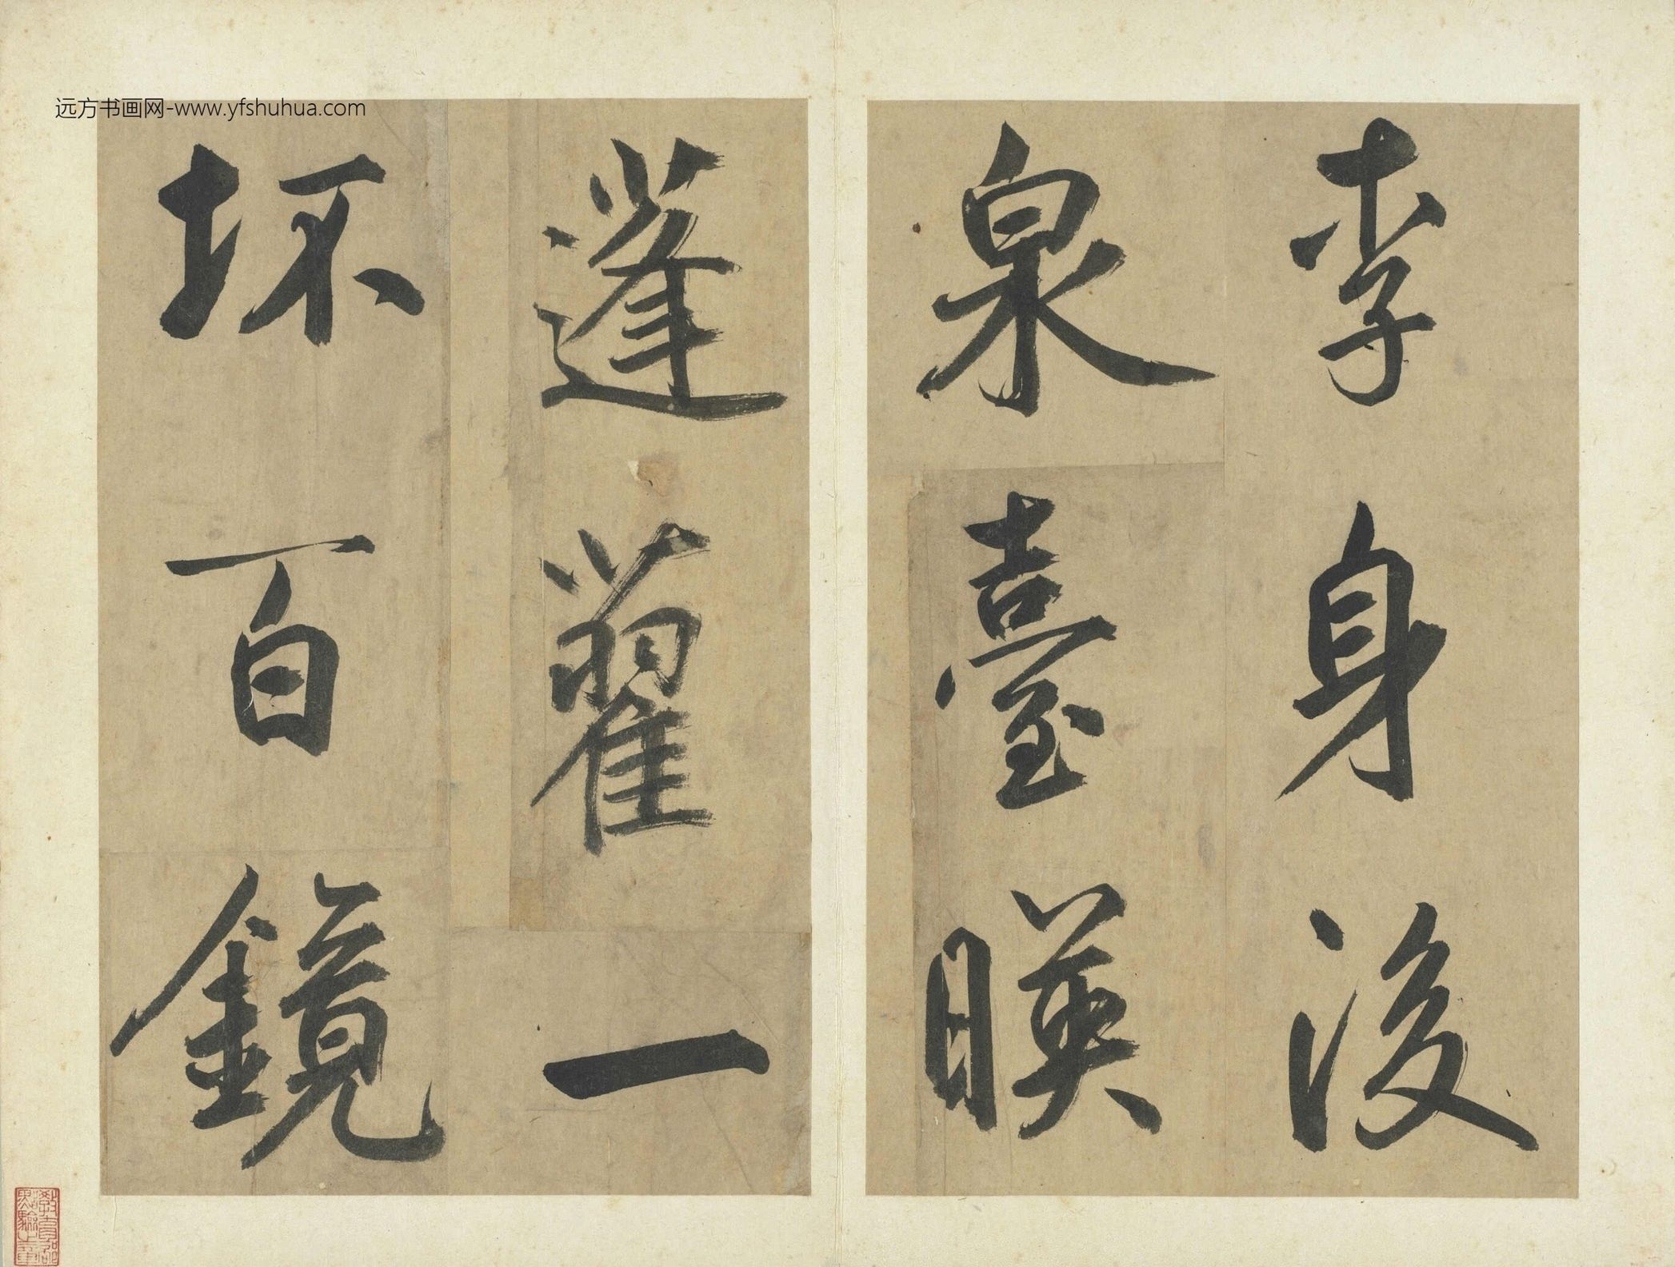 李身後
泉臺暎
蓬藋一
坏百鏡
远方书画网-www.yfshuhua.com